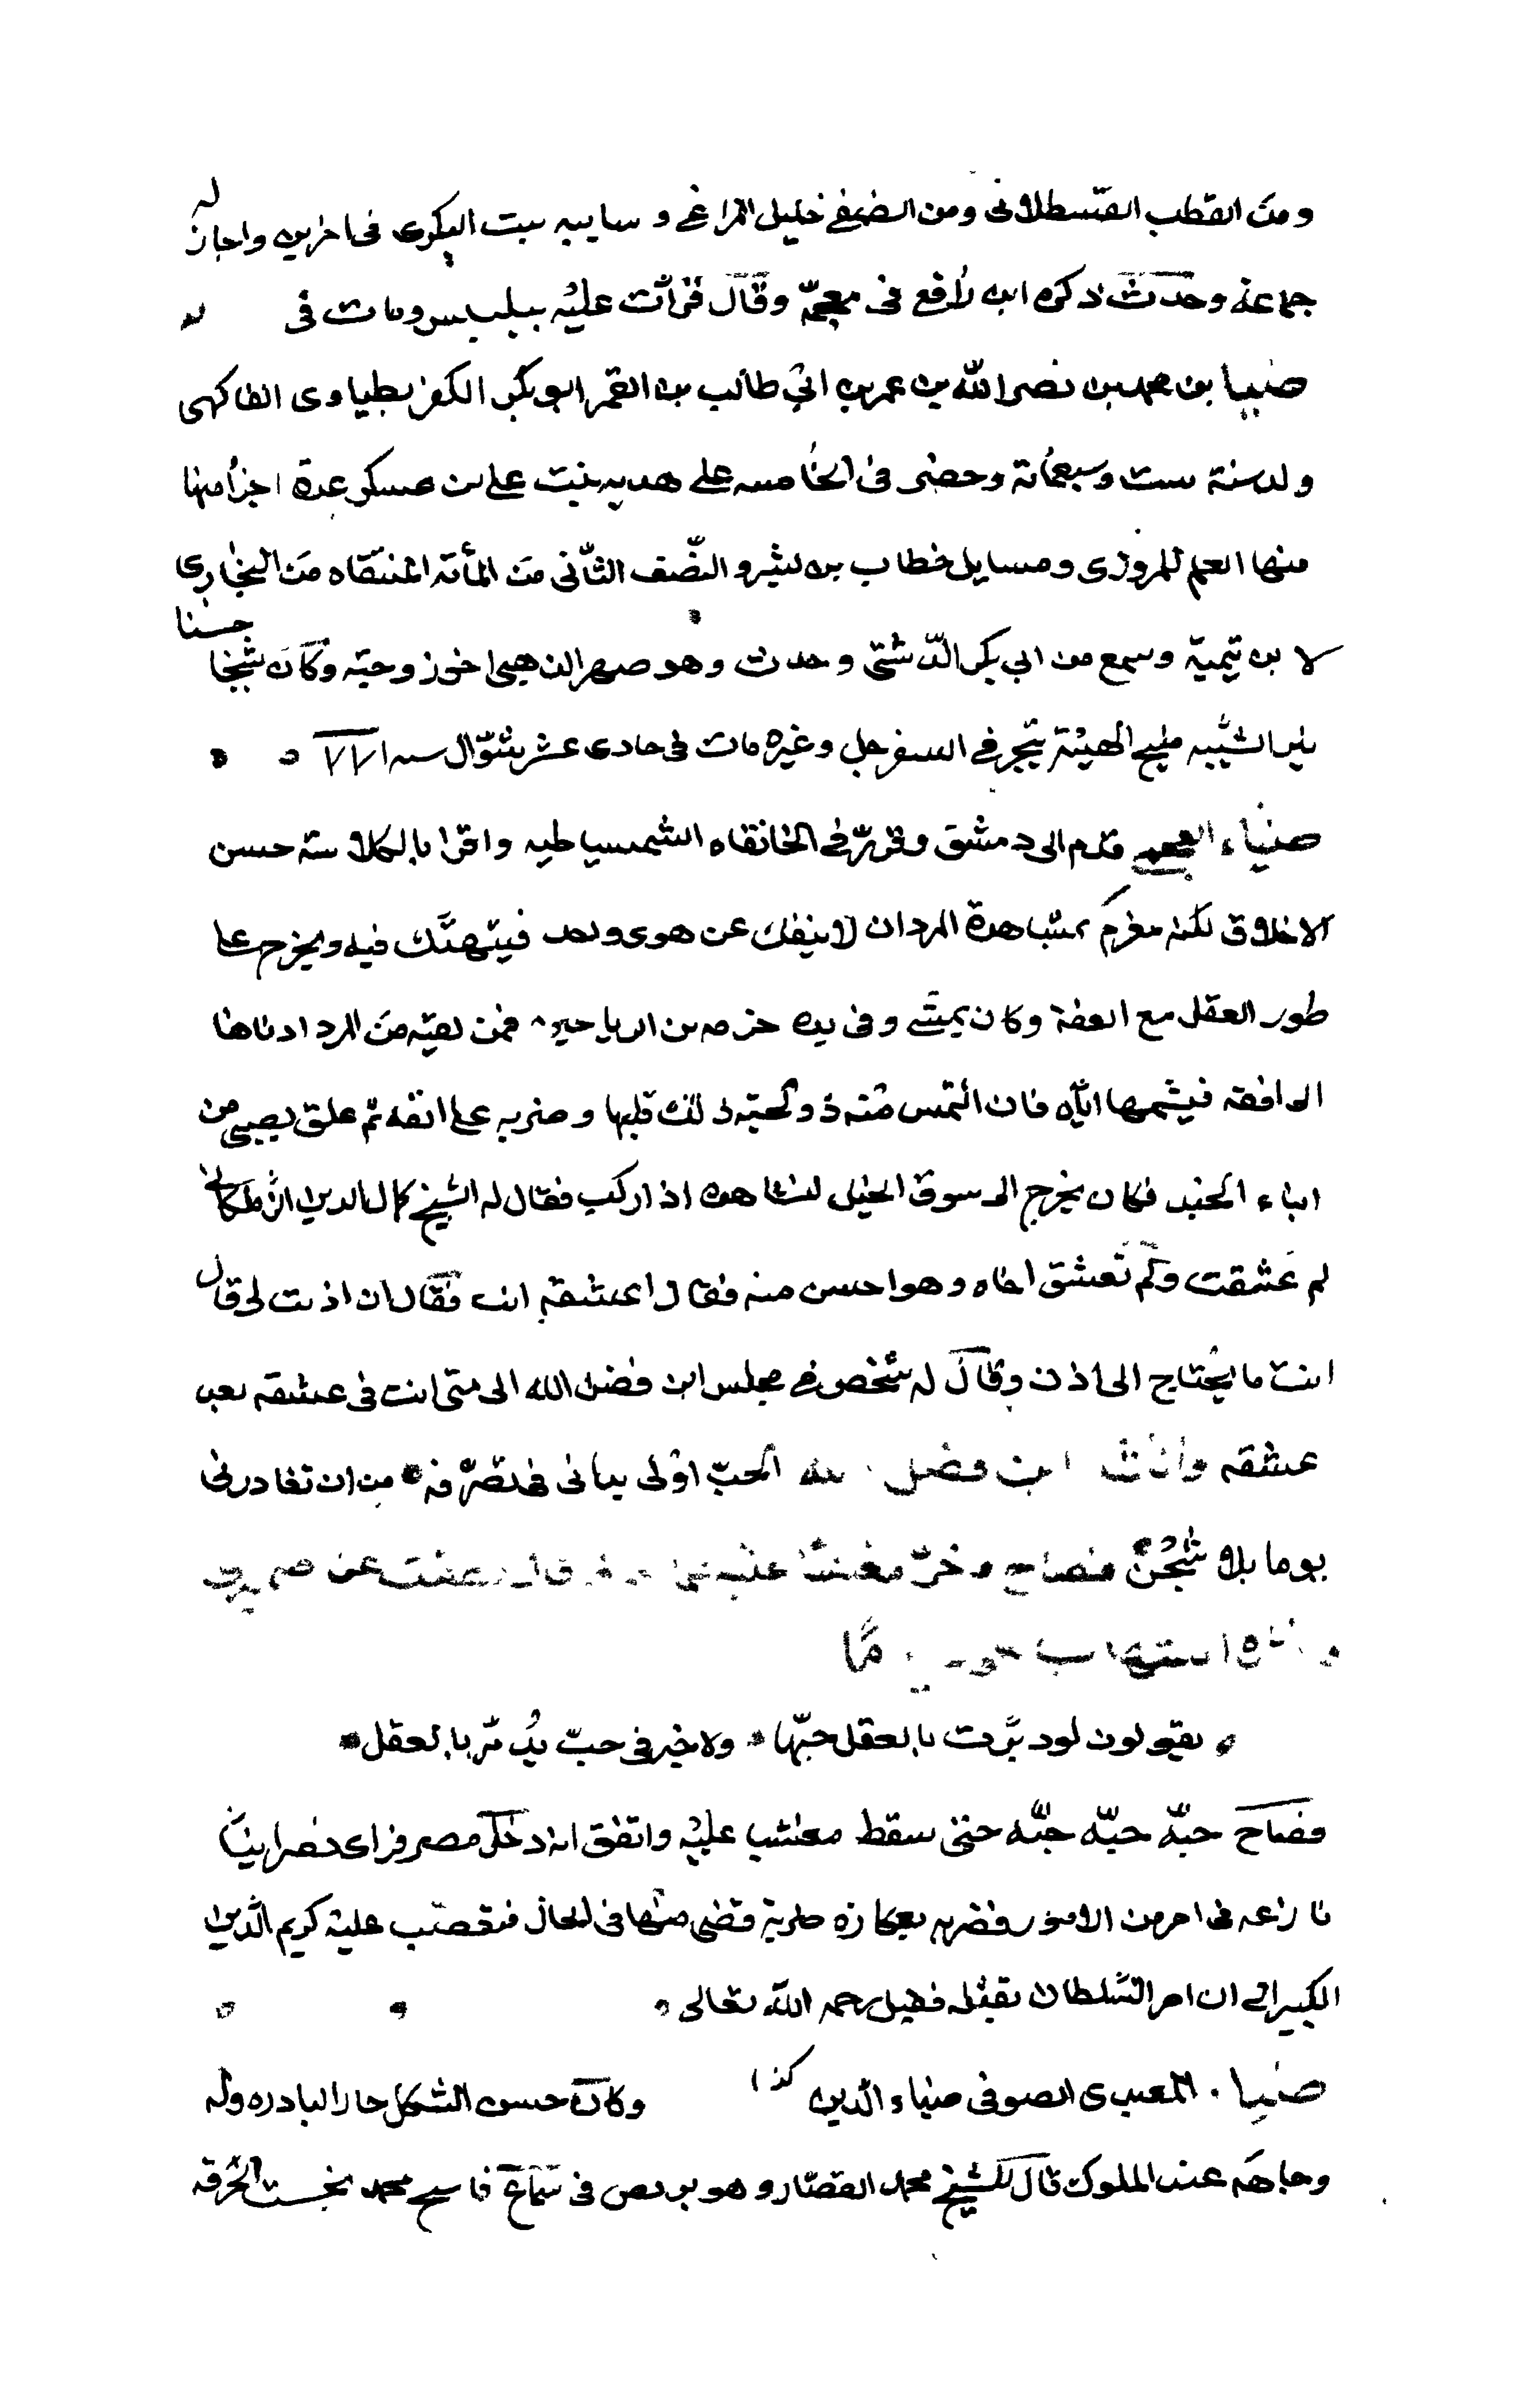 ومن القطب القسطلانى ومن الصفى خليل المراغى و سايبه ببت البكرى فى اخرين واجاز له
جماعة وحدث ذكره ابن رافع فى معجمه وقال قرأت عليه ببلبيس ومات فى
ضيا بن محمد بن نصر الله بن عمر بن ابى طالب بن القمر ابو بكر الكفربطياوى الفاكهى
ولد سنة ست وسبعمائة وحضر فى الخامسه على هديه بنت على بن عسكر عدة اجزأ منها
منها العلم للمروزى ومسايل خطاب بن بشير و النصف الثانى من المأته المنتقاه من البخارى
لا بن تيمية وسمع من ابى بكر الدشتى وحدث وهو صهر الذهبى اخو زوجته وكان شيخا حسنا
نير الشيبه مليح الهيئة يتجر فى السفرجل وغيره مات فى حادى عشر شوال سنه ٧٧١
ضياء العجمى قدم الى دمشق وقرر فى الخانقاه الشميساطيه واقرا بالكلاسة حسن
الاخلاق لكنه مغرم بمشاهدة المردان لا ينفك عن هوى واحد فيتهتك فيه ويخرج عا
طور العقل مع العفة وكان يمشى وفى يده حزمه من الرياحين فمن لقيه من المرد ادناها
الى افقه فيشمها اياه فان التمس منه ذو لحية ذلك قلبها وضربه على انفه ثم علق بصبى من
ابناء الجند فكان يخرج الى سوق الخيل لمشاهده اذا ركب فقال له الشيخ كمال الدين الزملكانى
لم عشقت ولم تعشق اخاه وهو احسن منه فقال اعشقه انت فقال ان اذنت لى قال
انت ما يحتاج الى اذن وقال له شخص فى مجلس ابن فضل الله الى متى انت فى عشقه بعد
عشقه وانشد ابن فضل الله الحب اولى بيانى فى تصرفه من ان تغادرنى
يوما بلا شجن فصاح وخر مغشيا عليه
يقولون لو دبرت بالعقل حبها ولا خير فى حب يدبر بالعقل
فصاح حبه حبه حبه حتى سقط مغشيا عليه واتفق انه دخل مصر فراى نصرانيا
نازعه فى امر من الامور فضربه بعكازه ضربة قضى منها فى الحال فتعصب عليه كريم الدين
الكبير الى ان امر السلطان بقتله فقيل رحمه الله تعالى
ضيا المعبدى الصوفى ضياء الدين كذا وكان حسن الشكل حار البادره وله
وجاهه عند الملوك قال للشيخ محمد القصار وهو يرقص فى سماع فا سيح محمد نجست الخرقه